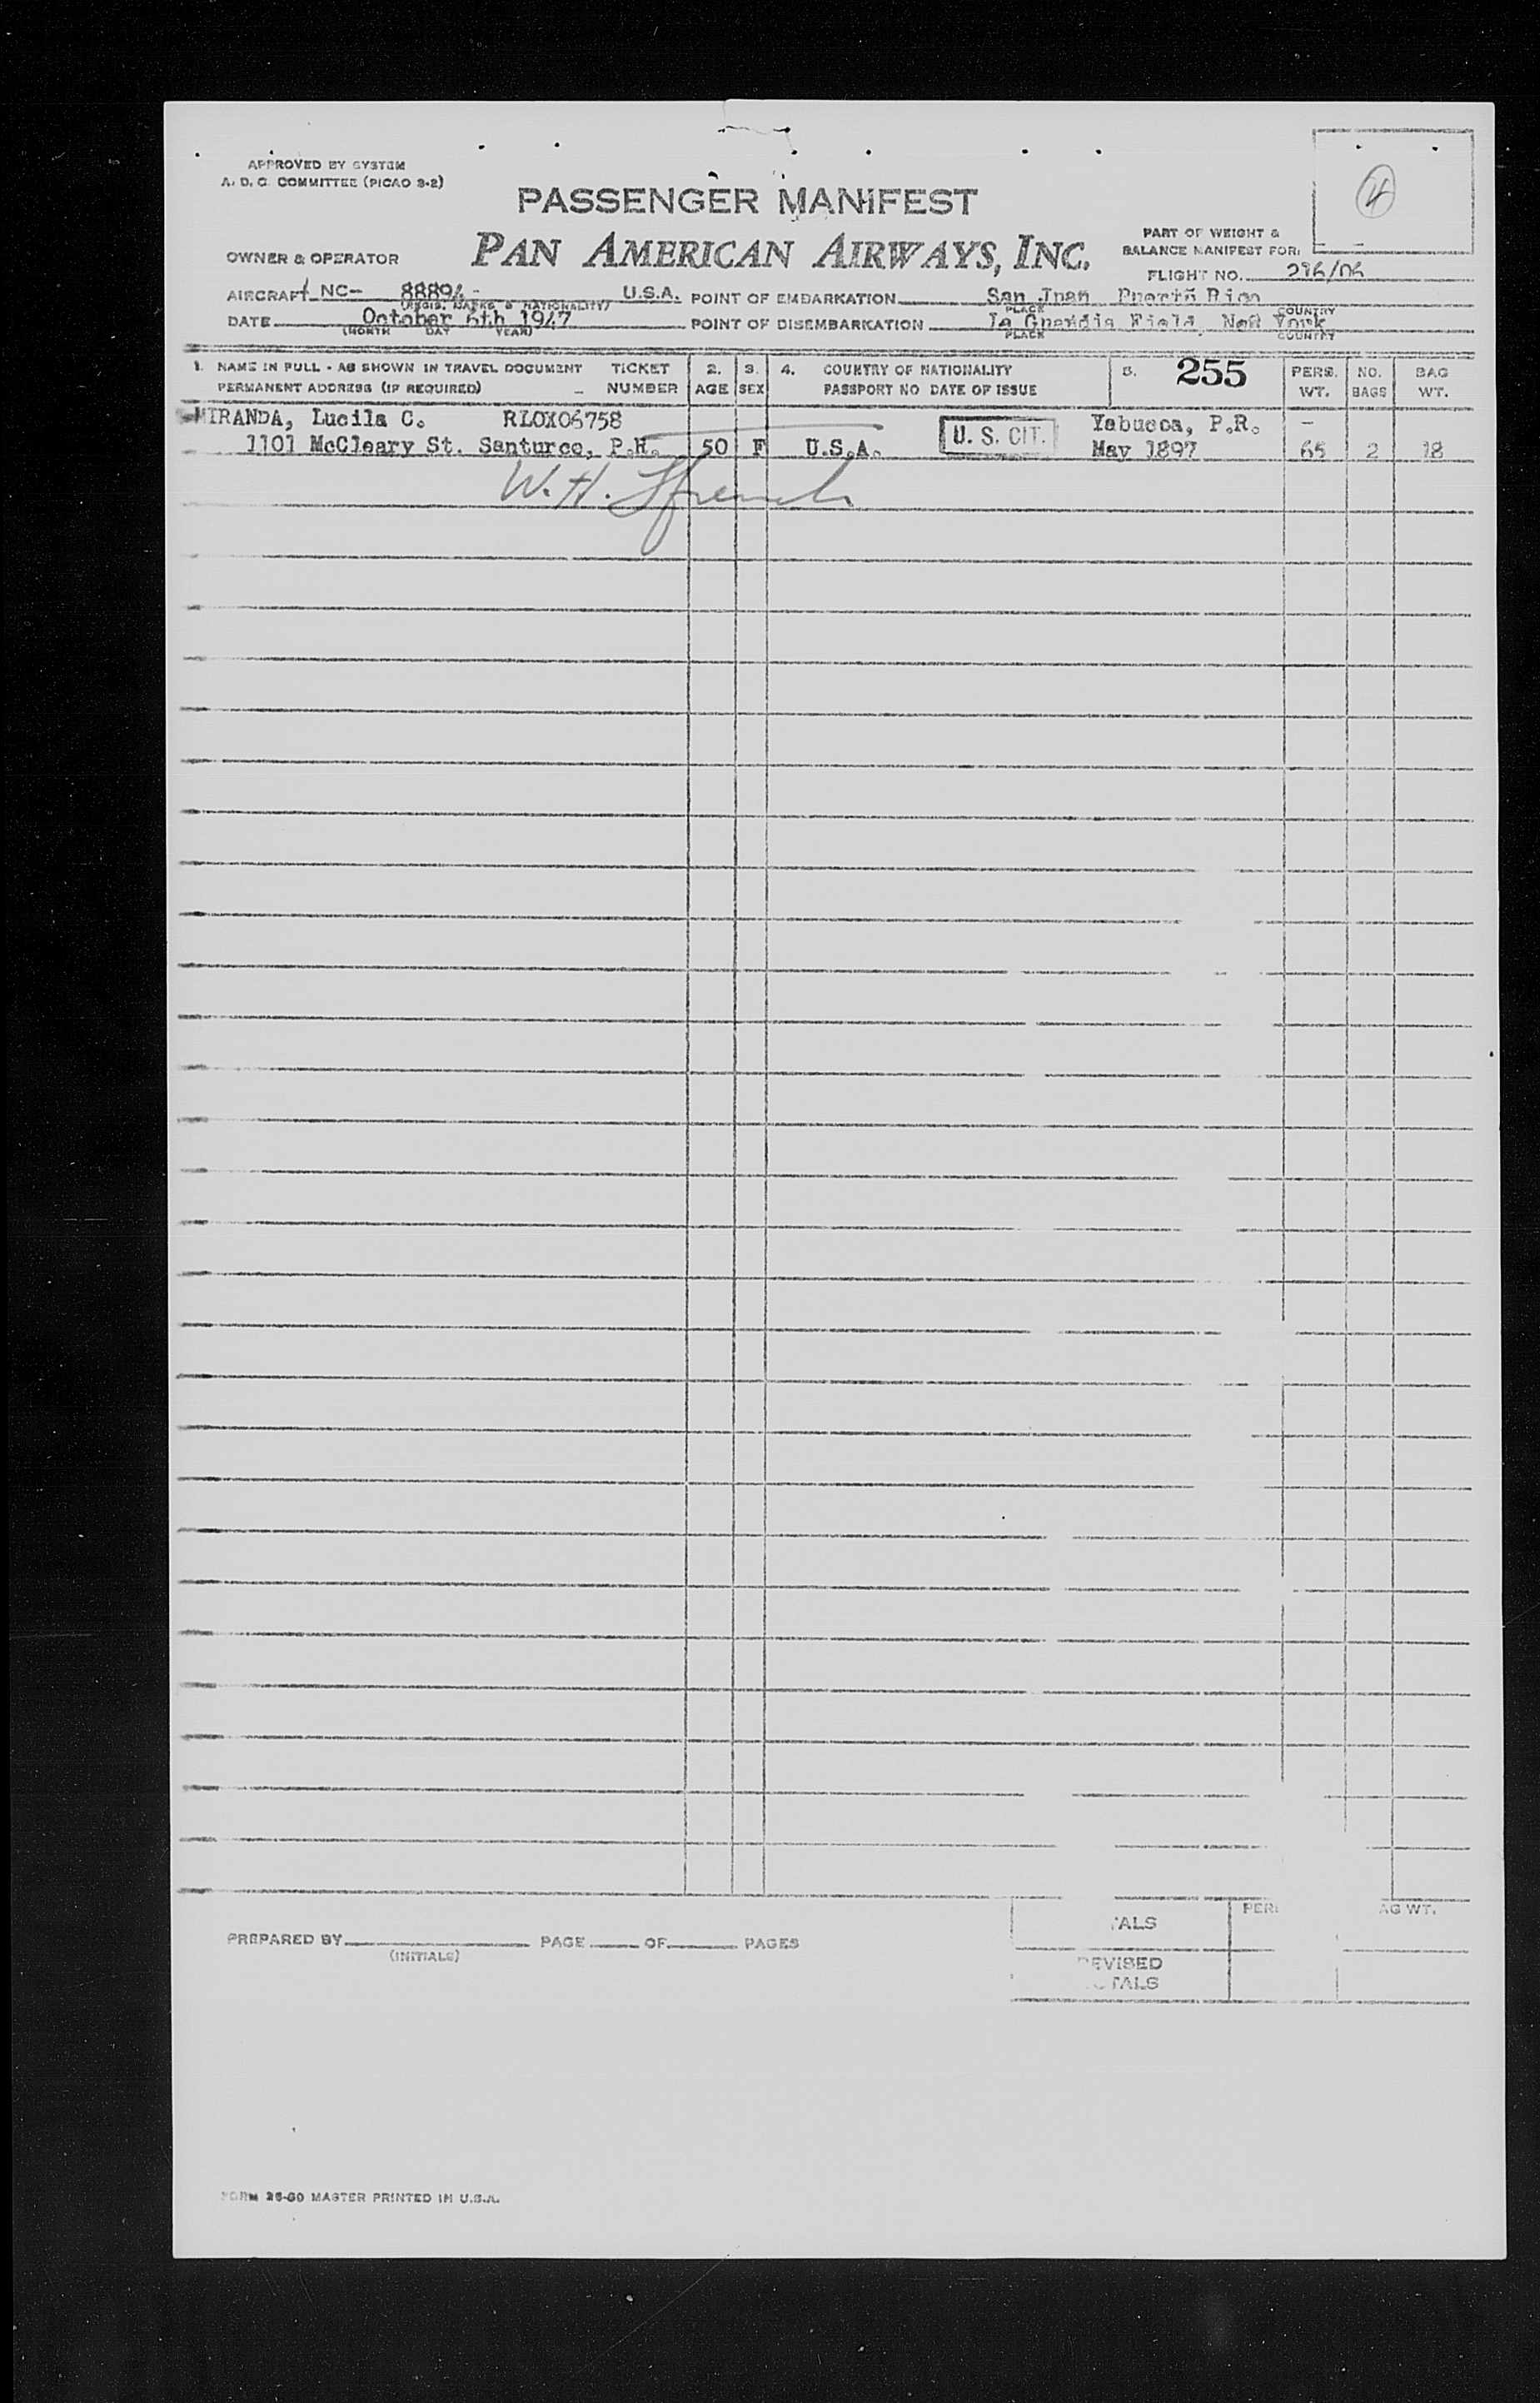 APPROVED BY SYSTEM
A. D. C. COMMITTEE (PICAO 3-2)
4
PASSENGER MANIFEST
PART OF WEIGHT &
BALANCE MANIFEST FOR:
OWNER & OPERATOR PAN AMERICAN AIRWAYS, INC.
FLIGHT NO. 216/06
AIRCRAFT NC- 88894 - U.S.A. POINT OF EMBARKATION San Juan Puerto Rico
(REGIS. MARKS & NATIONALITY) PLACE COUNTRY
DATE October 6th 1947 POINT OF DISEMBARKATION La Guardia Field, New York
(MONTH DAY YEAR) PLACE COUNTRY
1. NAME IN FULL - AS SHOWN IN TRAVEL DOCUMENT TICKET 2. 3. 4. COUNTRY OF NATIONALITY 5. 255 PERS. NO. BAG
PERMANENT ADDRESS (IF REQUIRED) NUMBER AGE SEX PASSPORT NO DATE OF ISSUE WT. BAGS WT.
MIRANDA, Lucila C. RLOX06758 U. S. CIT. Yabucoa, P.R. -
1101 McCleary St. Santurce, P.R. 50 F U.S.A. May 1897 65 2 18
W. H.
PREPARED BY PAGE OF PAGES
(INITIALS)
TALS PER AG WT.
REVISED
OTALS
FORM 26-60 MASTER PRINTED IN U.S.A.